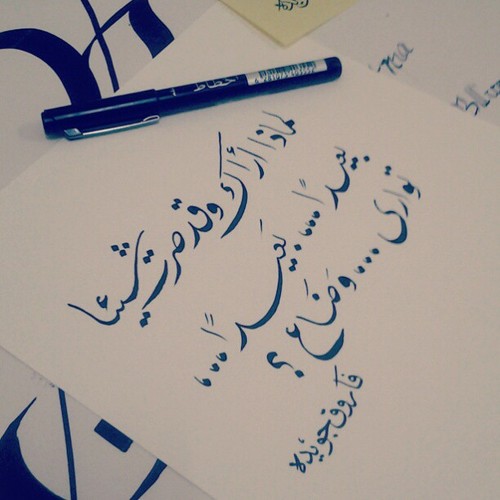 لماذا أراك وقد صرت شيئا
بعيدًا... بَعيدًا...
توارى... وَضَاع ؟
فاروق جويده
خطاط